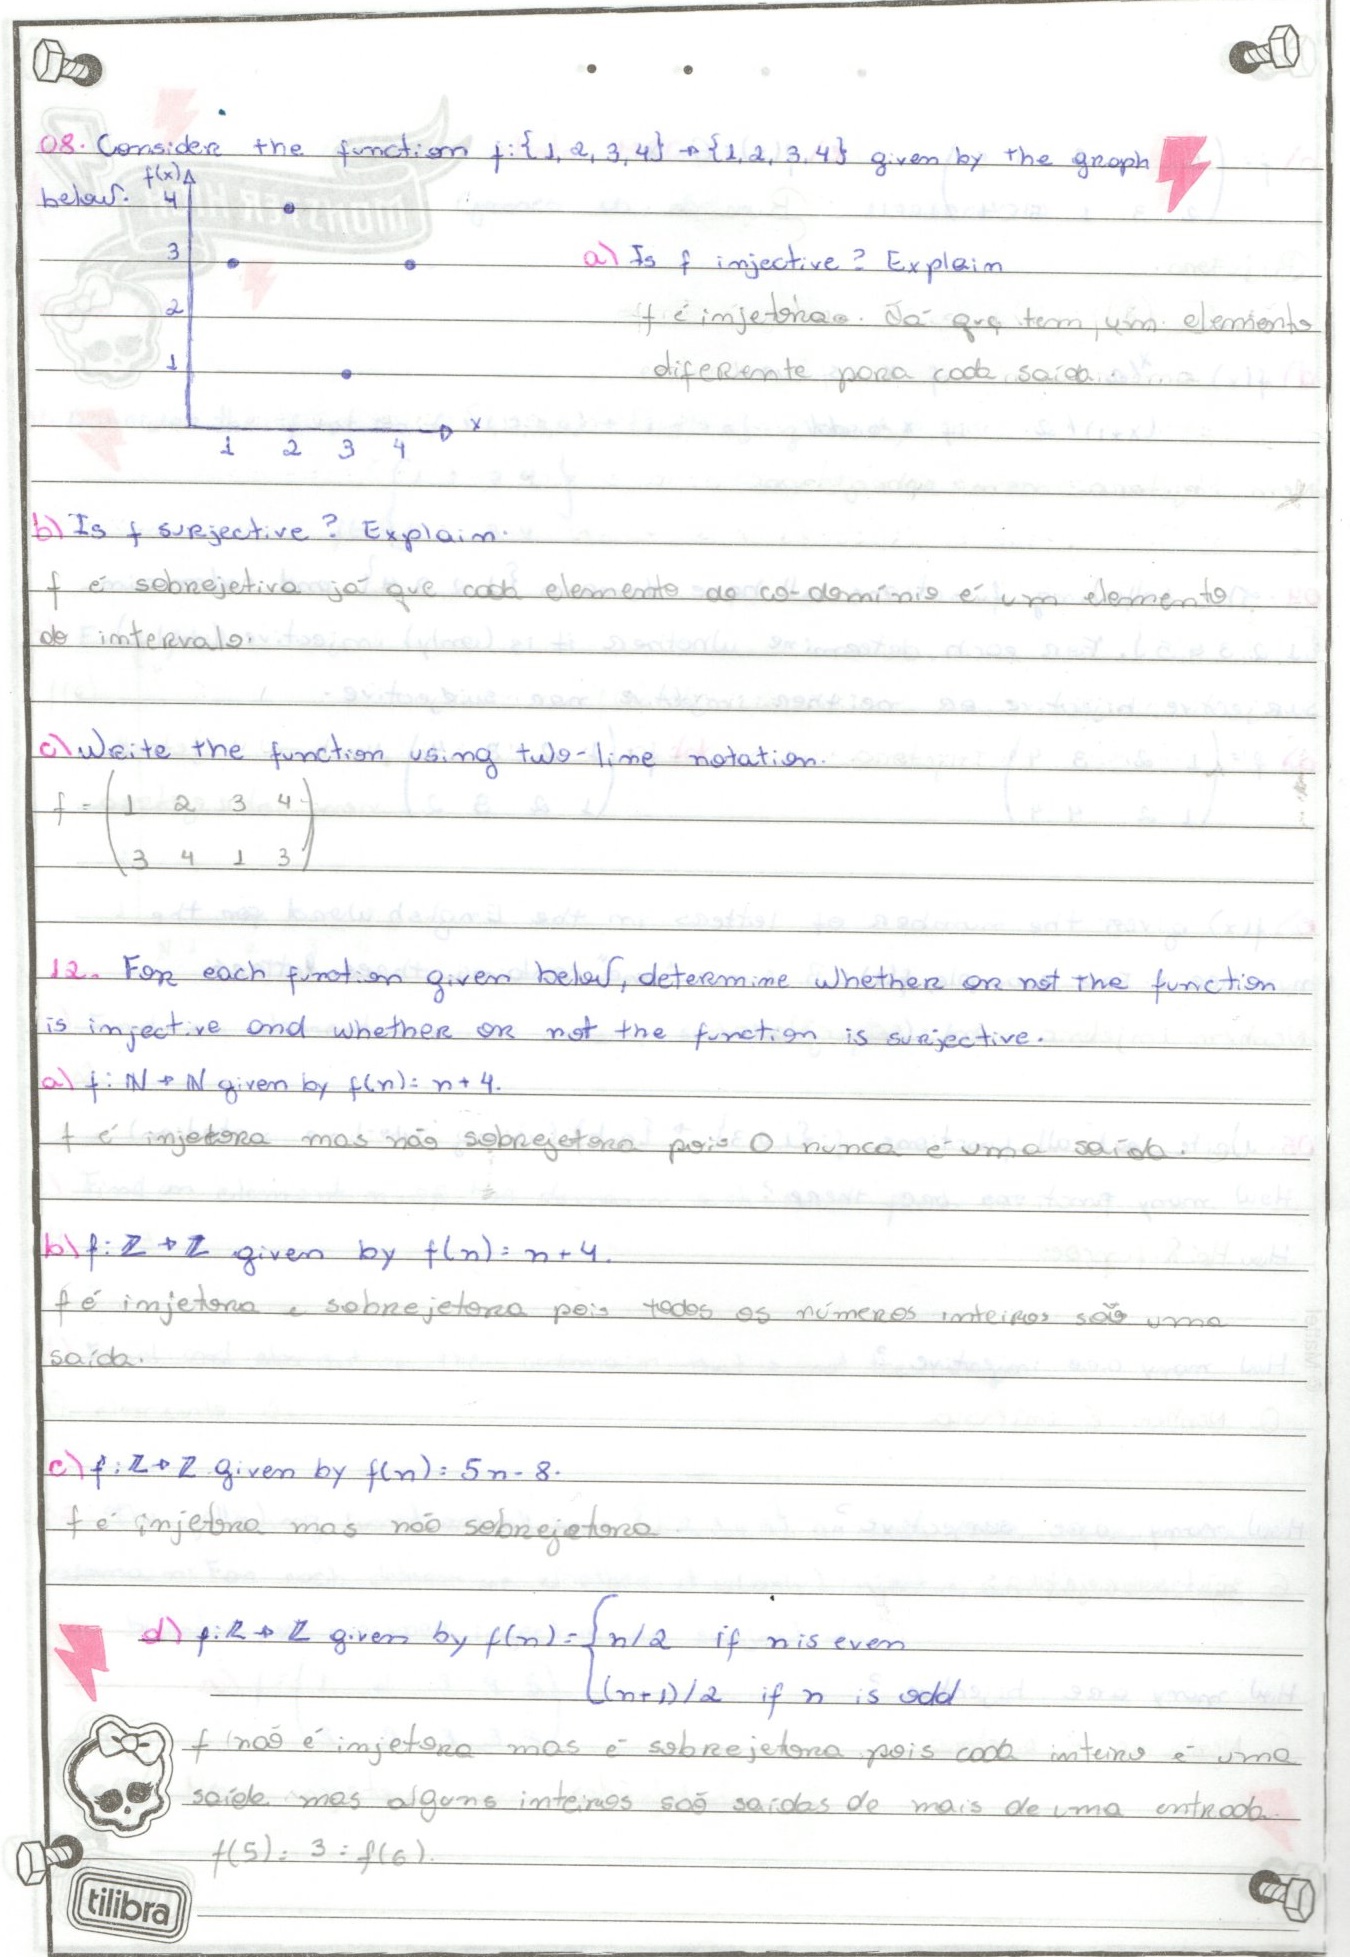 08. Consider the function f:{1, 2, 3, 4} → {1, 2, 3, 4} given by the graph
below.
f(x)
4
3
2
1
1 2 3 4 x
a) Is f injective? Explain
f é injetora. Já que tem um elemento
diferente para cada saída.
b) Is f surjective? Explain.
f é sobrejetiva já que cada elemento do co-domínio é um elemento
do intervalo.
c) Write the function using two-line notation.
f = (1 2 3 4
3 4 1 3)
12. For each function given below, determine whether or not the function
is injective and whether or not the function is surjective.
a) f: ℕ → ℕ given by f(n) = n + 4.
f é injetora mas não sobrejetora pois 0 nunca é uma saída.
b) f: ℤ → ℤ given by f(n) = n + 4.
f é injetora e sobrejetora pois todos os números inteiros são uma
saída.
c) f: ℤ → ℤ given by f(n) = 5n - 8.
f é injetora mas não sobrejetora
d) f: ℤ → ℤ given by f(n) = { n/2 if n is even
(n+1)/2 if n is odd
f não é injetora mas é sobrejetora pois cada inteiro é uma
saída mas alguns inteiros são saídas de mais de uma entrada.
f(5) = 3 = f(6).
tilibra